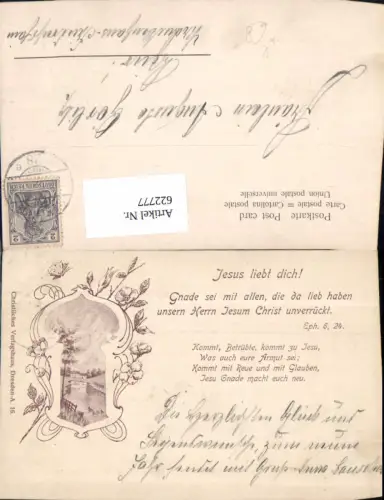 Fräulein Auguste
Artikel Nr.
622777
Postkarte Post card
Carte postale = Cartolina postale
Union postale universelle
DEUTSCHES REICH
2
2
Jesus liebt dich!
Gnade sei mit allen, die da lieb haben
unsern Herrn Jesum Christ unverrückt.
Eph. 6, 24.
Kommt, Betrübte, kommt zu Jesu,
Was auch eure Armut sei;
Kommt mit Reue und mit Glauben,
Jesu Gnade macht euch neu.
Christliches Verlagshaus, Dresden-A. 16.
Die herzlichsten Glück und
Segenswünsche, zum neuen
Jahr sendet mit Gruss